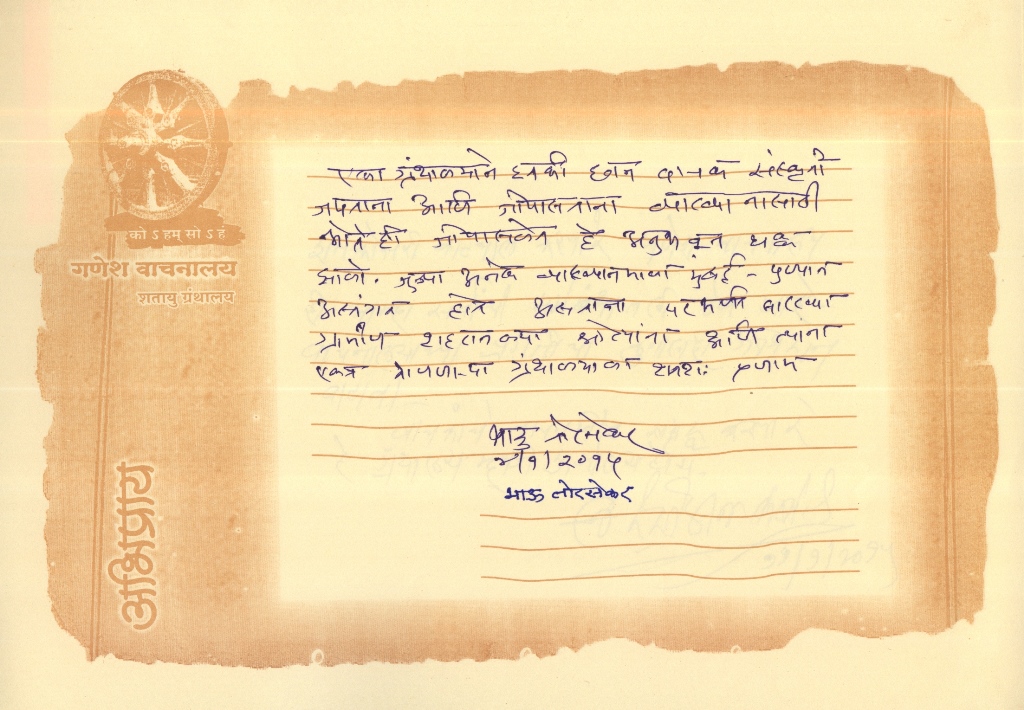 को ऽ हम् सो ऽ हं
गणेश वाचनालय
शतायु ग्रंथालय
अभिप्राय
एका ग्रंथालयाने इतकी छान वाचक संस्कृती
जपताना आणि जोपासताना व्याख्यानासाठी
श्रोते ही जोपासलेत हे अनुभवून थक्क
झालो. जुन्या अनेक व्याख्यानमाला मुंबई - पुण्यात
अस्तंगत होत असताना परभणी सारख्या
ग्रामीण शहरातल्या श्रोत्यांना आणि त्यांना
एकत्र आणणाऱ्या ग्रंथालयाला शतशः प्रणाम
भाऊ तोरसेकर
४/१/२०१५
भाऊ तोरसेकर